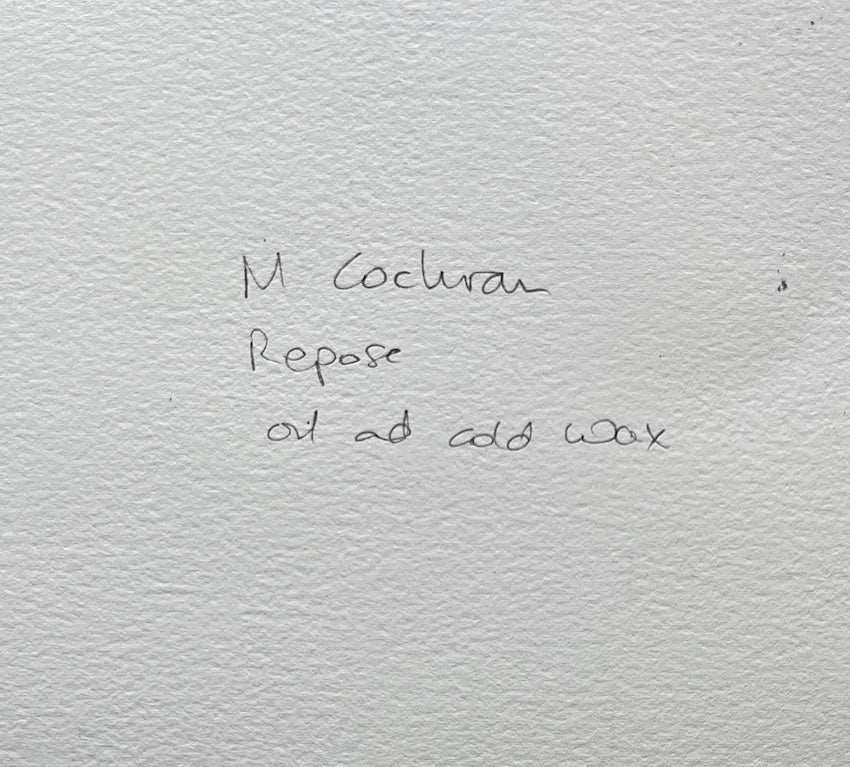 M Cochran
Repose
oil ad cold wax